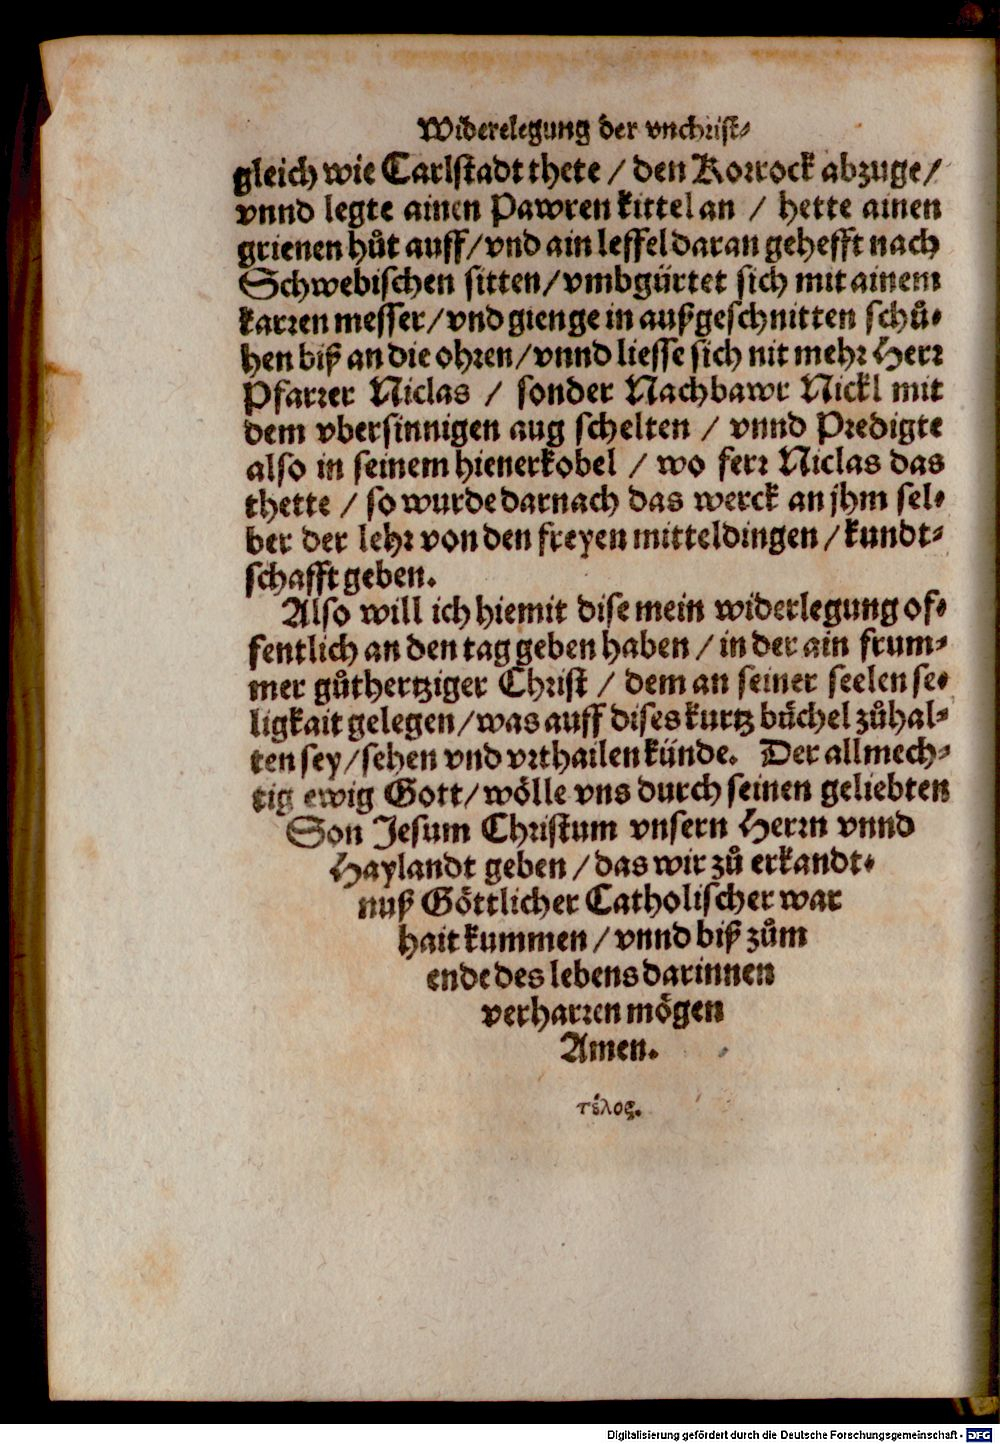 Widerelegung der vnchrist⸗
gleich wie Carlstadt thete / den Korrock abzuge /
vnnd legte ainen Pawren kittel an / hette ainen
grienen hůt auff / vnd ain leffel daran gehefft nach
Schwebischen sitten / vmbgürtet sich mit ainem
karren messer / vnd gienge in außgeschnitten schů⸗
hen biß an die ohren / vnnd liesse sich nit mehr Herr
Pfarrer Niclas / sonder Nachbawr Nickl mit
dem vbersinnigen aug schelten / vnnd Predigte
also in seinem hienerkobel / wo ferr Niclas das
thette / so wurde darnach das werck an jhm sel⸗
ber der lehr von den freyen mitteldingen / kundt⸗
schafft geben.
Also will ich hiemit dise mein widerlegung of⸗
fentlich an den tag geben haben / in der ain frum⸗
mer gůthertziger Christ / dem an seiner seelen se⸗
ligkait gelegen / was auff dises kurtz büchel zůhal⸗
ten sey / sehen vnd vrthailen künde. Der allmech⸗
tig ewig Gott / wölle vns durch seinen geliebten
Son Jesum Christum vnsern Herrn vnnd
Haylandt geben / das wir zů erkandt⸗
nuß Göttlicher Catholischer war
hait kummen / vnnd biß zům
ende des lebens darinnen
verharren mögen
Amen.
τέλος.
Digitalisierung gefördert durch die Deutsche Forschungsgemeinschaft - DFG